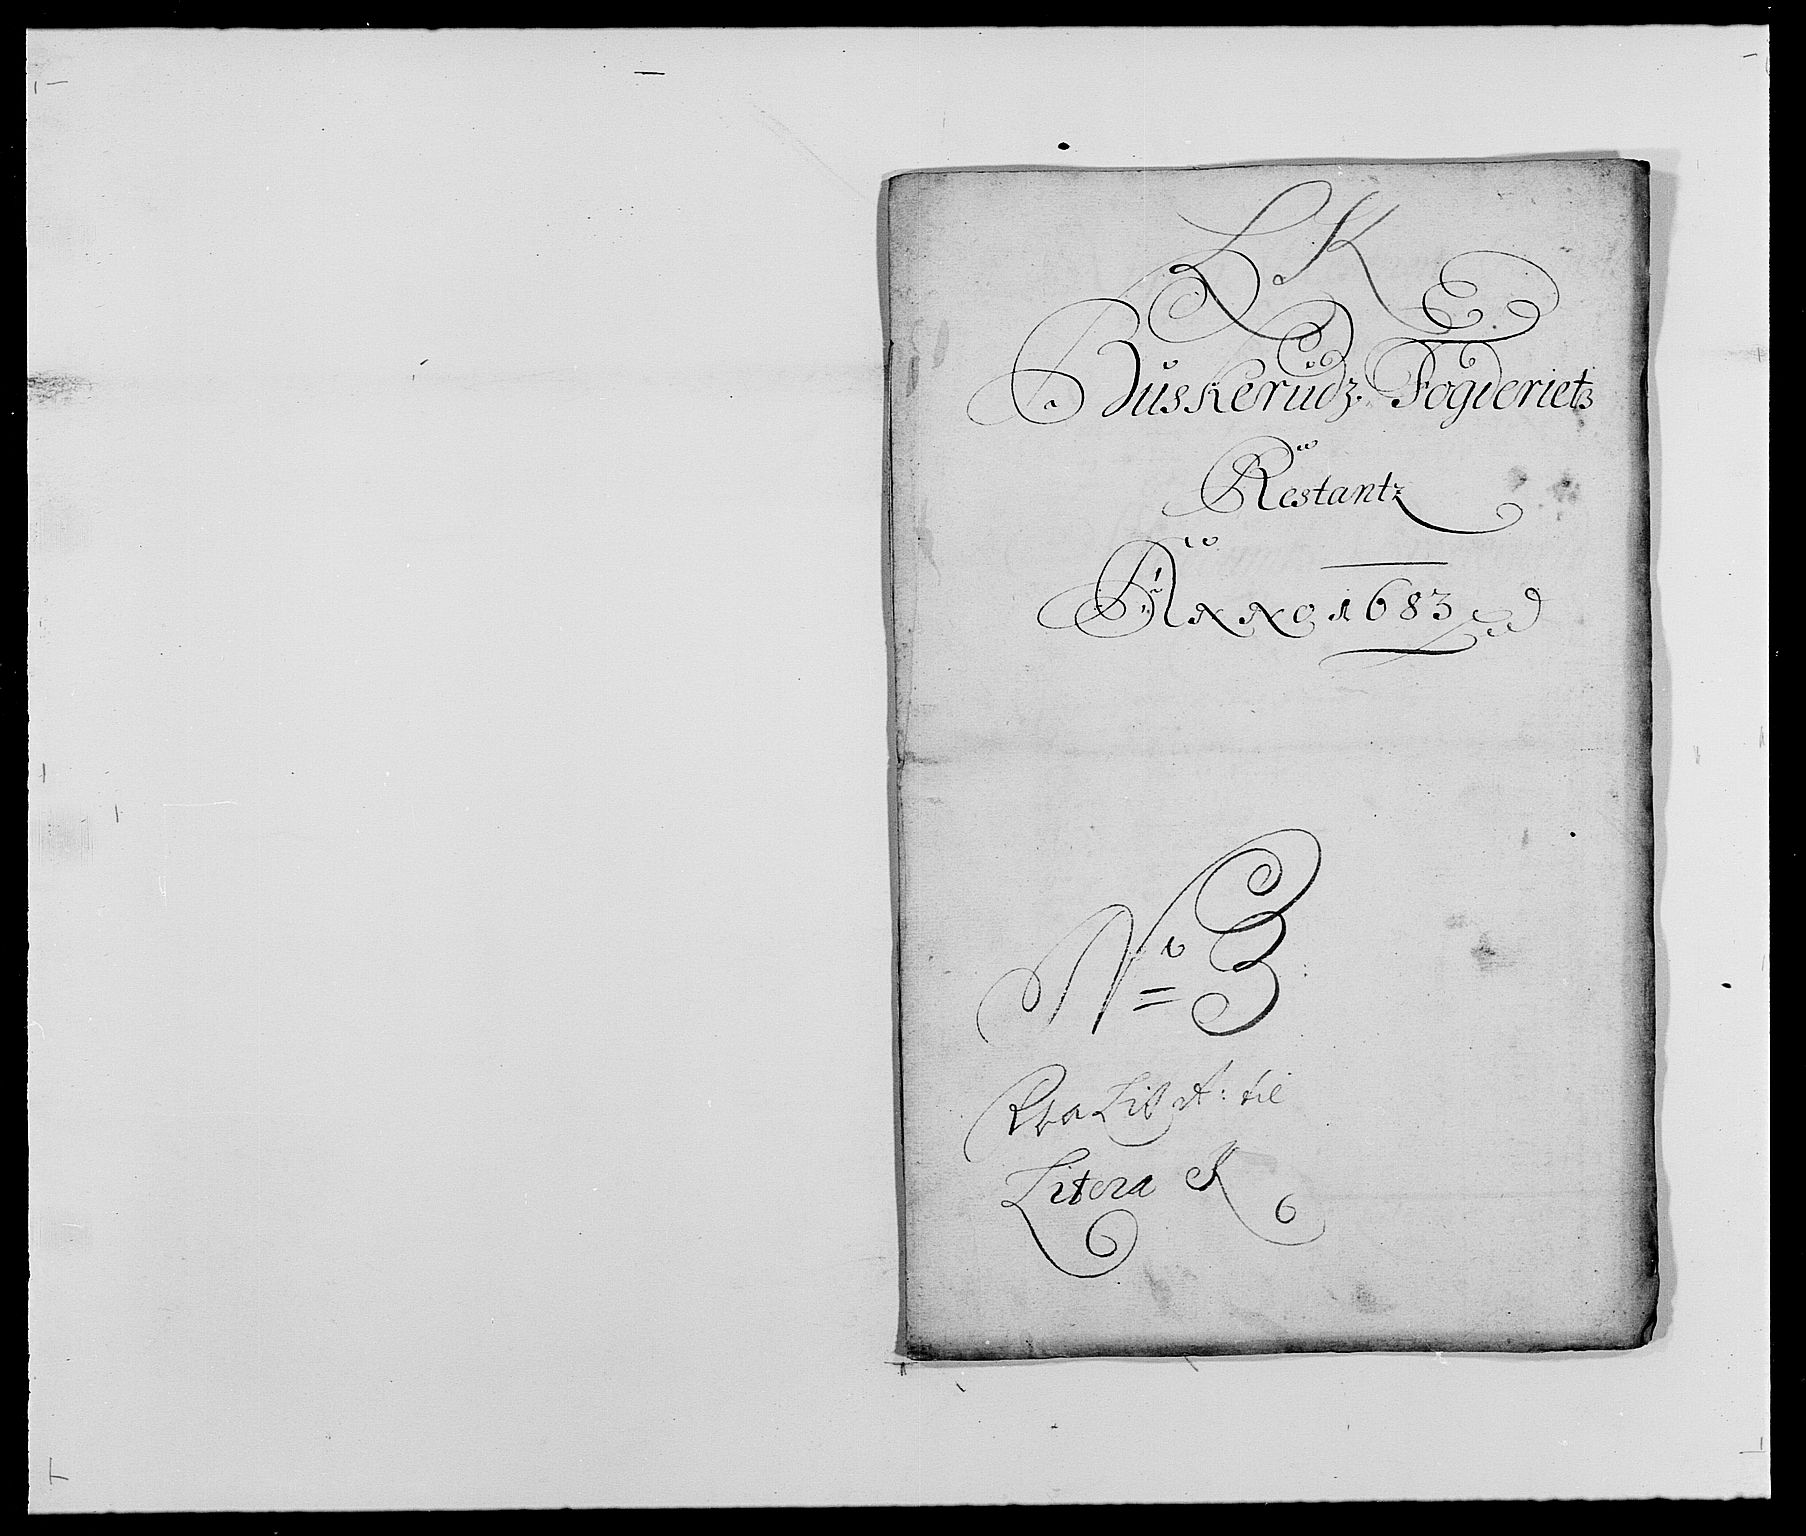 L K
Buskerudz Fogderietz
Restantz
Anno 1683
No 3
Fra Lit A: til
Litera K